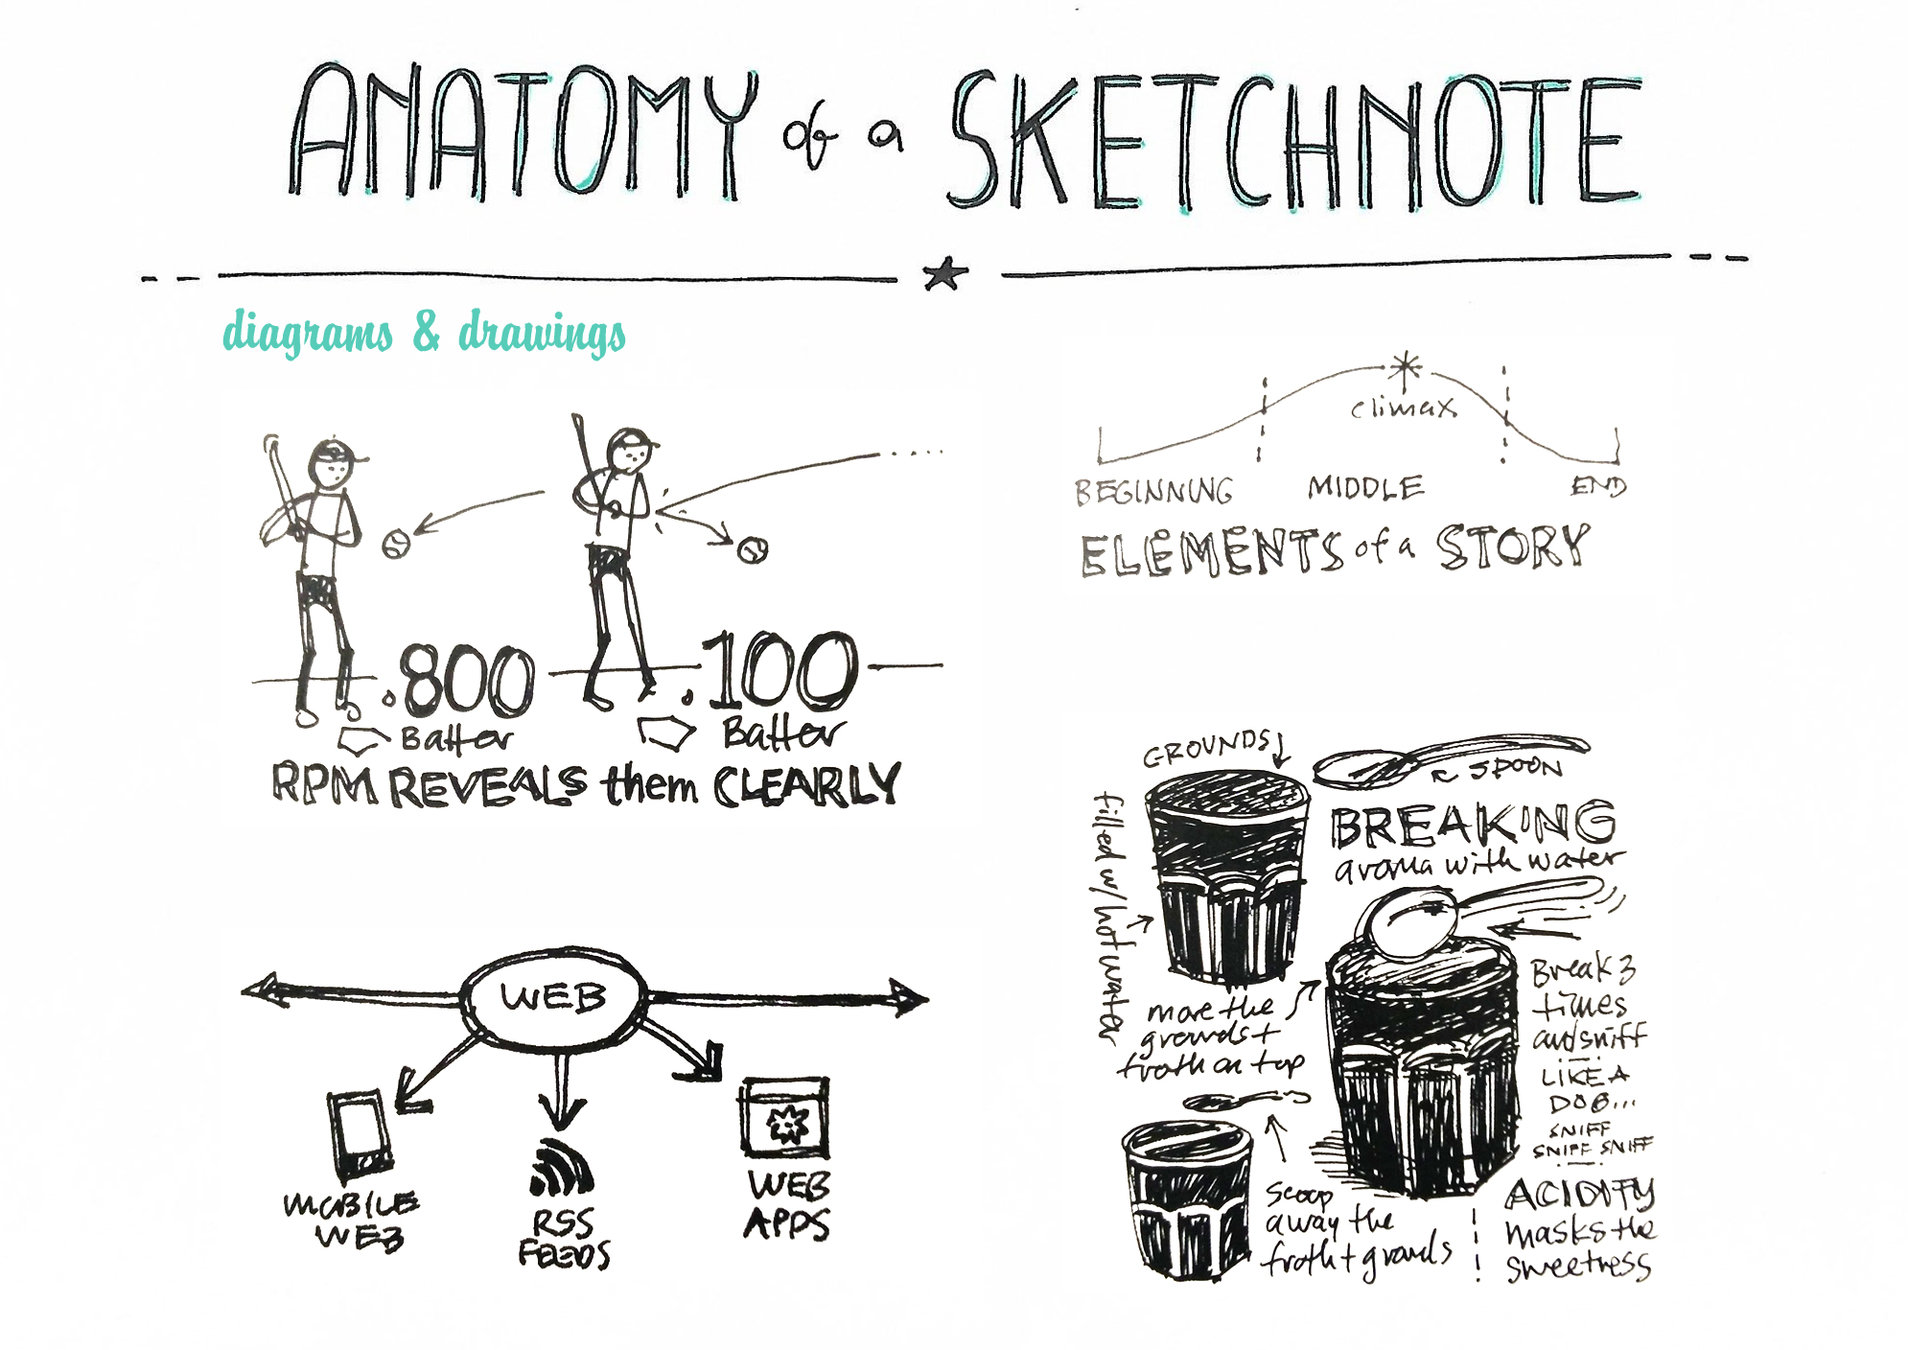 ANATOMY of a SKETCHNOTE
diagrams & drawings
.800
Batter
.100
Batter
RPM REVEALS them CLEARLY
climax
BEGINNING MIDDLE END
ELEMENTS of a STORY
WEB
MOBILE
WEB
RSS
FEEDS
WEB
APPS
GROUNDS
SPOON
filled w/ hot water
BREAKING
aroma with water
move the
grounds +
froth on top
Break 3
times
and sniff
LIKE A
DOG...
SNIFF
SNIFF SNIFF
Scoop
away the
froth + grounds
ACIDITY
masks the
sweetness